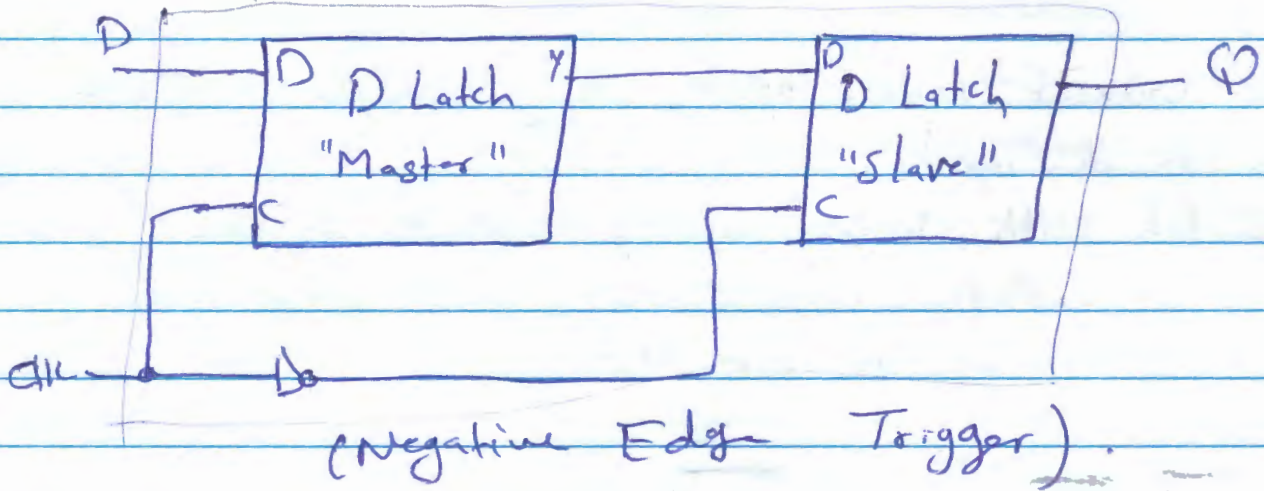 D
D D Latch Y
"Master"
C
D
D Latch Q
"Slave"
C
Clk
(Negative Edge Trigger).